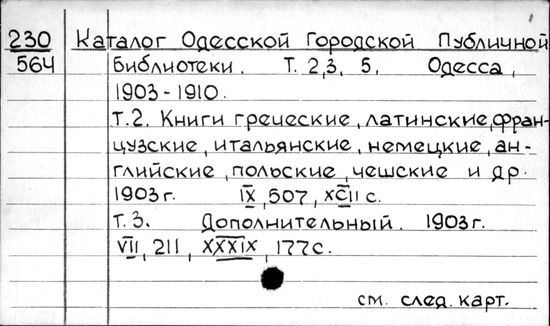 230 Каталог Одесской Городской Публичной
564 Библиотеки. Т. 2,3, 5. Одесса,
1903-1910.
Т.2. Книги греческие, латинские, фран-
цузские, итальянские, немецкие, ан-
глийские, польские, чешские и др.
1903 г. IX, 507, XCII с.
Т. 3. Дополнительный. 1903 г.
VII, 211, XXXIX, 177 с.
см. след. карт.